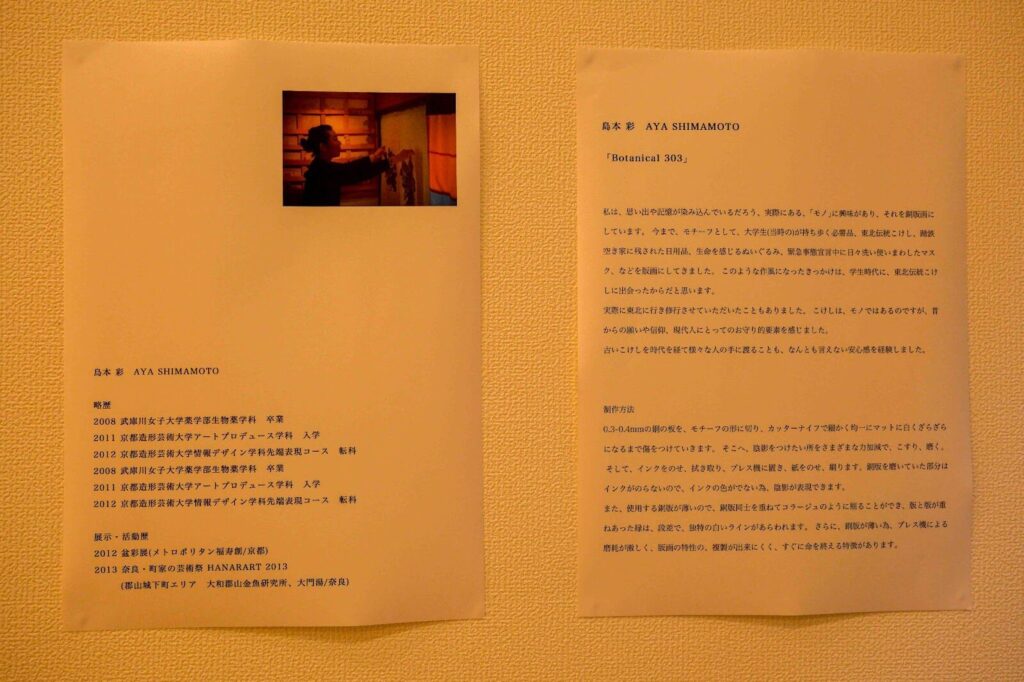 島本 彩　AYA SHIMAMOTO
略歴
2008 武庫川女子大学薬学部生物薬学科　卒業
2011 京都造形芸術大学アートプロデュース学科　入学
2012 京都造形芸術大学情報デザイン学科先端表現コース　転科
2008 武庫川女子大学薬学部生物薬学科　卒業
2011 京都造形芸術大学アートプロデュース学科　入学
2012 京都造形芸術大学情報デザイン学科先端表現コース　転科
展示・活動歴
2012 盆彩展(メトロポリタン福寿創/京都)
2013 奈良・町家の芸術祭 HANARART 2013
(郡山城下町エリア　大和郡山金魚研究所、大門湯/奈良)
島本 彩　AYA SHIMAMOTO
「Botanical 303」
私は、思い出や記憶が染み込んでいるだろう、実際にある、「モノ」に興味があり、それを銅版画に
しています。 今まで、モチーフとして、大学生(当時の)が持ち歩く必需品、東北伝統こけし、
空き家に残された日用品、生命を感じるぬいぐるみ、緊急事態宣言中に日々洗い使いまわしたマス
ク、などを版画にしてきました。 このような作風になったきっかけは、学生時代に、東北伝統こけ
しに出会ったからだと思います。
実際に東北に行き修行させていただいたこともありました。 こけしは、モノではあるのですが、昔
からの願いや信仰、現代人にとってのお守り的要素を感じました。
古いこけしを時代を経て様々な人の手に渡ることも、なんとも言えない安心感を経験しました。
制作方法
0.3-0.4mmの銅の板を、モチーフの形に切り、カッターナイフで細かく均一にマットに白くざらざら
になるまで傷をつけていきます。 そこへ、陰影をつけたい所をさまざまな力加減で、こすり、磨く。
そして、インクをのせ、拭き取り、プレス機に置き、紙をのせ、刷ります。銅版を磨いていた部分は
インクがのらないので、インクの色がでない為、陰影が表現できます。
また、使用する銅版が薄いので、銅版同士を重ねてコラージュのように刷ることができ、版と版が重
ねあった縁は、段差で、独特の白いラインがあらわれます。 さらに、銅版が薄い為、プレス機による
磨耗が激しく、版画の特性の、複製が出来にくく、すぐに命を終える特徴があります。